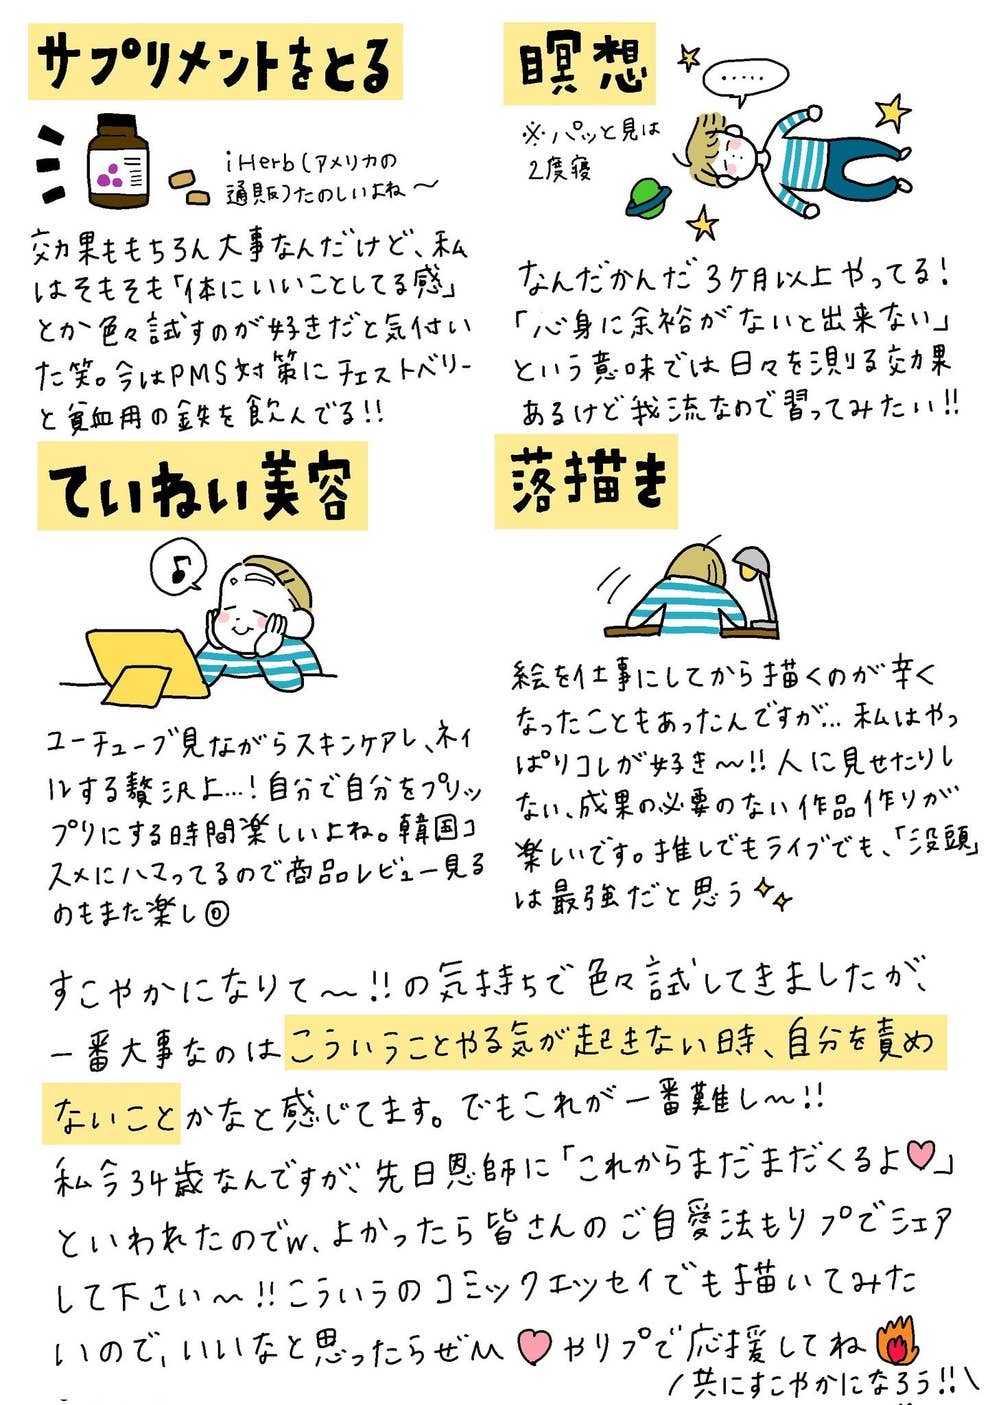 サプリメントをとる
iHerb(アメリカの
通販)たのしいよね〜
効果ももちろん大事なんだけど、私
はそもそも「体にいいことしてる感」
とか色々試すのが好きだと気付い
た笑。今はPMS対策にチェストベリー
と貧血用の鉄を飲んでる!!
瞑想
.....
※パッと見は
2度寝
なんだかんだ3ケ月以上やってる!
「心身に余裕がないと出来ない」
という意味では日々を測る効果
あるけど我流なので習ってみたい!!
ていねい美容
ユーチューブ見ながらスキンケアし、ネイ
ルする贅沢よ...!自分で自分をプリッ
プリにする時間楽しいよね。韓国コ
スメにハマってるので商品レビュー見る
のもまた楽し◎
落描き
絵を仕事にしてから描くのが辛く
なったこともあったんですが...私はやっ
ぱりコレが好き〜!!人に見せたりし
ない、成果の必要のない作品作りが
楽しいです。推しでもライブでも、「没頭」
は最強だと思う
すこやかになりて〜!!の気持ちで色々試してきましたが、
一番大事なのはこういうことやる気が起きない時、自分を責め
ないことかなと感じてます。でもこれが一番難し〜!!
私今34歳なんですが、先日恩師に「これからまだまだくるよ♡」
といわれたのでw、よかったら皆さんのご自愛法もリプでシェア
して下さい〜!!こういうのコミックエッセイでも描いてみた
いので、いいなと思ったらぜひ♡やリプで応援してね
\共にすこやかになろう!!/